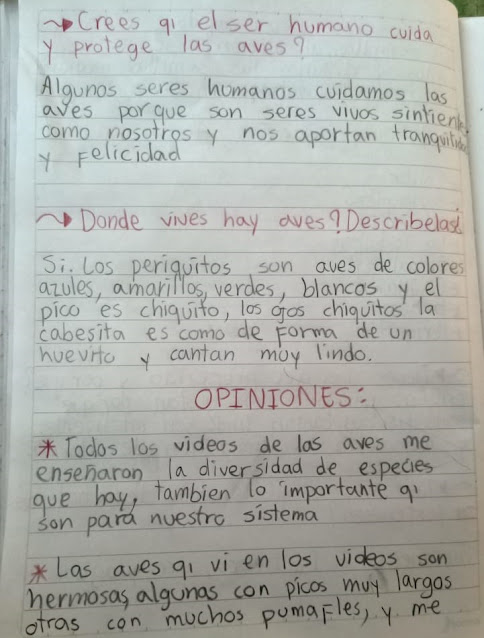 Crees qi el ser humano cuida
y protege las aves?
Algunos seres humanos cuidamos las
aves porque son seres vivos sintien
como nosotros y nos aportan tranquilid
y Felicidad
Donde vives hay aves? Describelas
Si. Los periquitos son aves de colores
azules, amarillos, verdes, blancos y el
pico es chiquito, los ojos chiquitos la
cabesita es como de forma de un
huevito y cantan muy lindo.
OPINIONES:
* Todos los videos de las aves me
enseñaron la diversidad de especies
que hay, tambien lo importante qi
son para nuestro sistema
* Las aves qi vi en los videos son
hermosas, algunas con picos muy largos
otras con muchos pumafles, y me